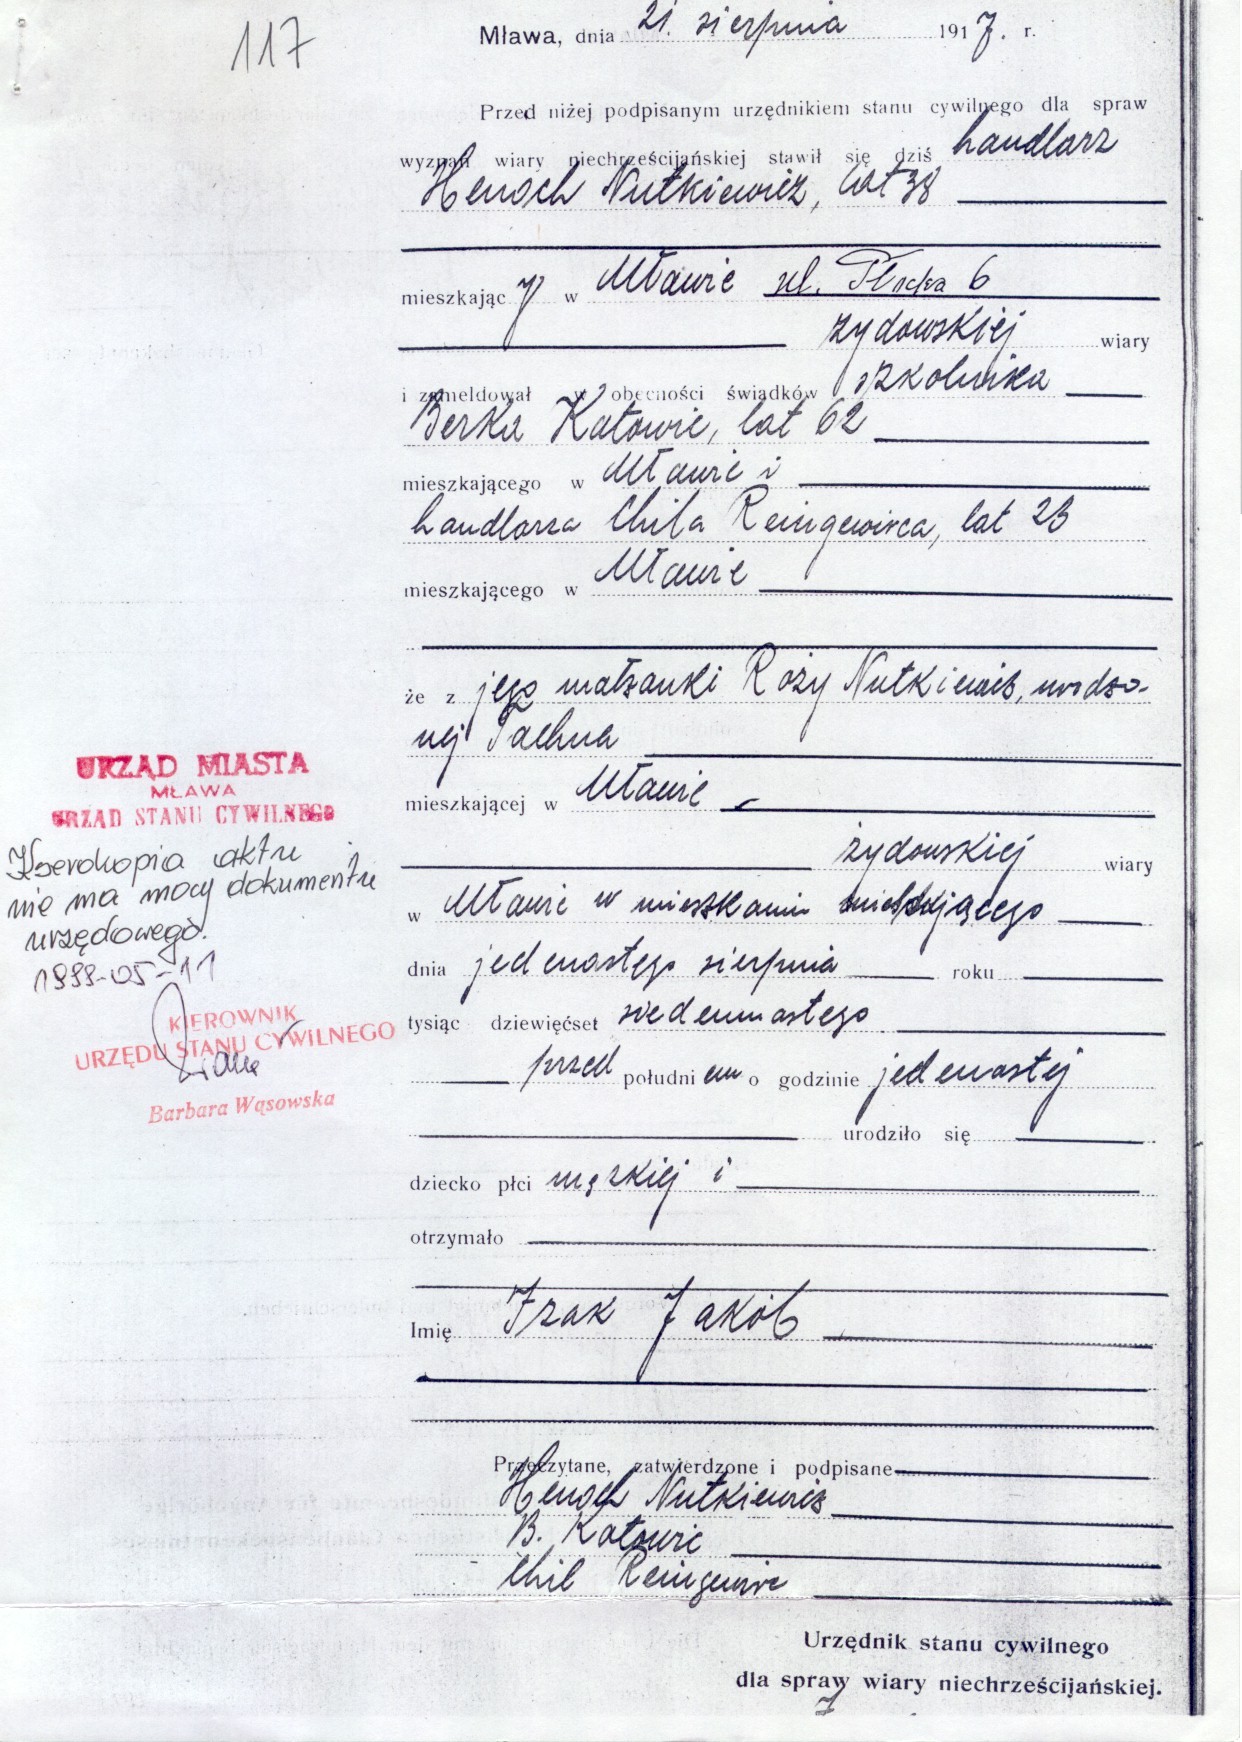 117
Mława, dnia 21. sierpnia 1917. r.
Przed niżej podpisanym urzędnikiem stanu cywilnego dla spraw
wyznań wiary niechrześcijańskiej stawił się dziś handlarz
Henoch Nutkiewicz, lat 38
mieszkający w Mławie ul. Płocka 6
żydowskiej wiary
i zameldował w obecności świadków szkolnika
Berka Katowic, lat 62
mieszkającego w Mławie i
handlarza Chila Reingewirca, lat 23
mieszkającego w Mławie
że z jego małżanki Roży Nutkiewicz, urodzo-
nej
mieszkającej w Mławie
żydowskiej wiary
w Mławie w mieszkaniu
dnia jedenastego sierpnia roku
tysiąc dziewięćset siedemnastego
przed południem o godzinie jedenastej
urodziło się
dziecko płci męzkiej i
otrzymało
Imię Izak Jakób
Przeczytane, zatwierdzone i podpisane
Henoch Nutkiewicz
B. Katowic
Chil Reingewirc
Urzędnik stanu cywilnego
dla spraw wiary niechrześcijańskiej.
URZĄD MIASTA
MŁAWA
URZĄD STANU CYWILNEGO
Kserokopia aktu
nie ma mocy dokumentu
urzędowego.
1999-05-11
KIEROWNIK
URZĘDU STANU CYWILNEGO
Barbara Wąsowska